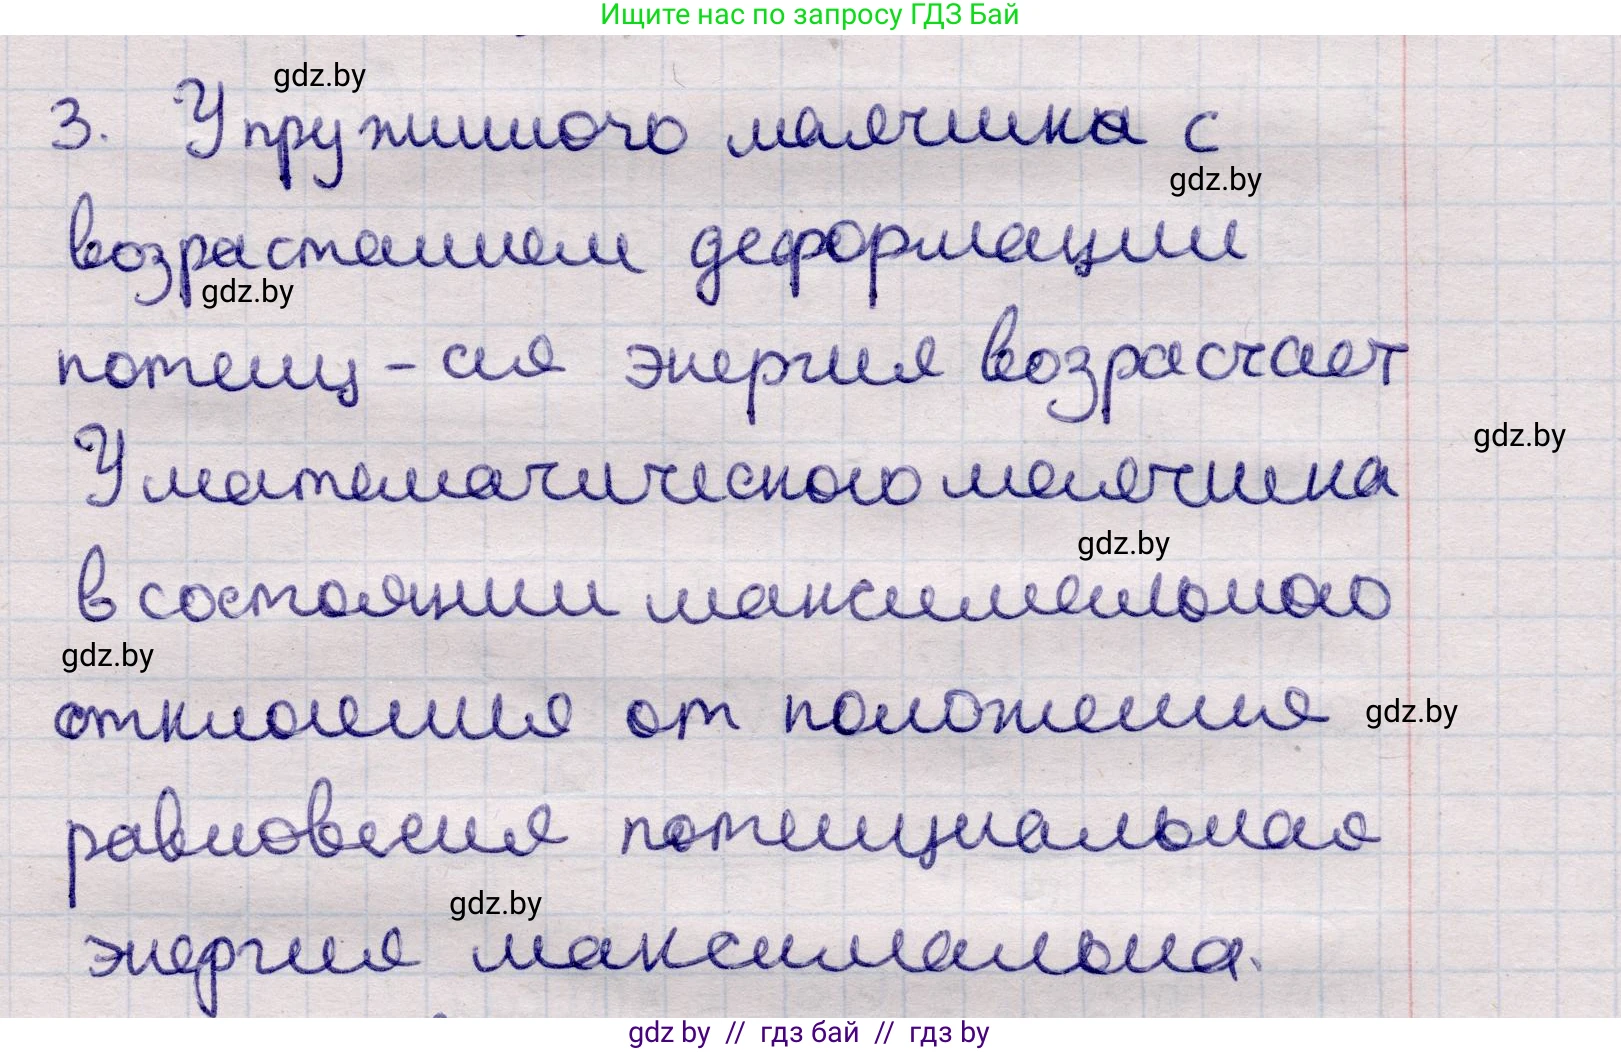 Ищите нас по запросу ГДЗ Бай
gdz.by
3. У пружинного маятника с
gdz.by
возрастанием деформации
gdz.by
потенц-ая энергия возрастает
gdz.by
У математического маятника
gdz.by
в состоянии максимального
gdz.by
отклонения от положения
gdz.by
равновесия потенциальная
gdz.by
энергия максимальна.
gdz by // гдз бай // гдз by